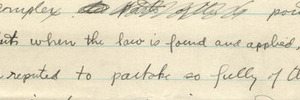 complex
when the law is found and applied,
reputed to partake so fully of